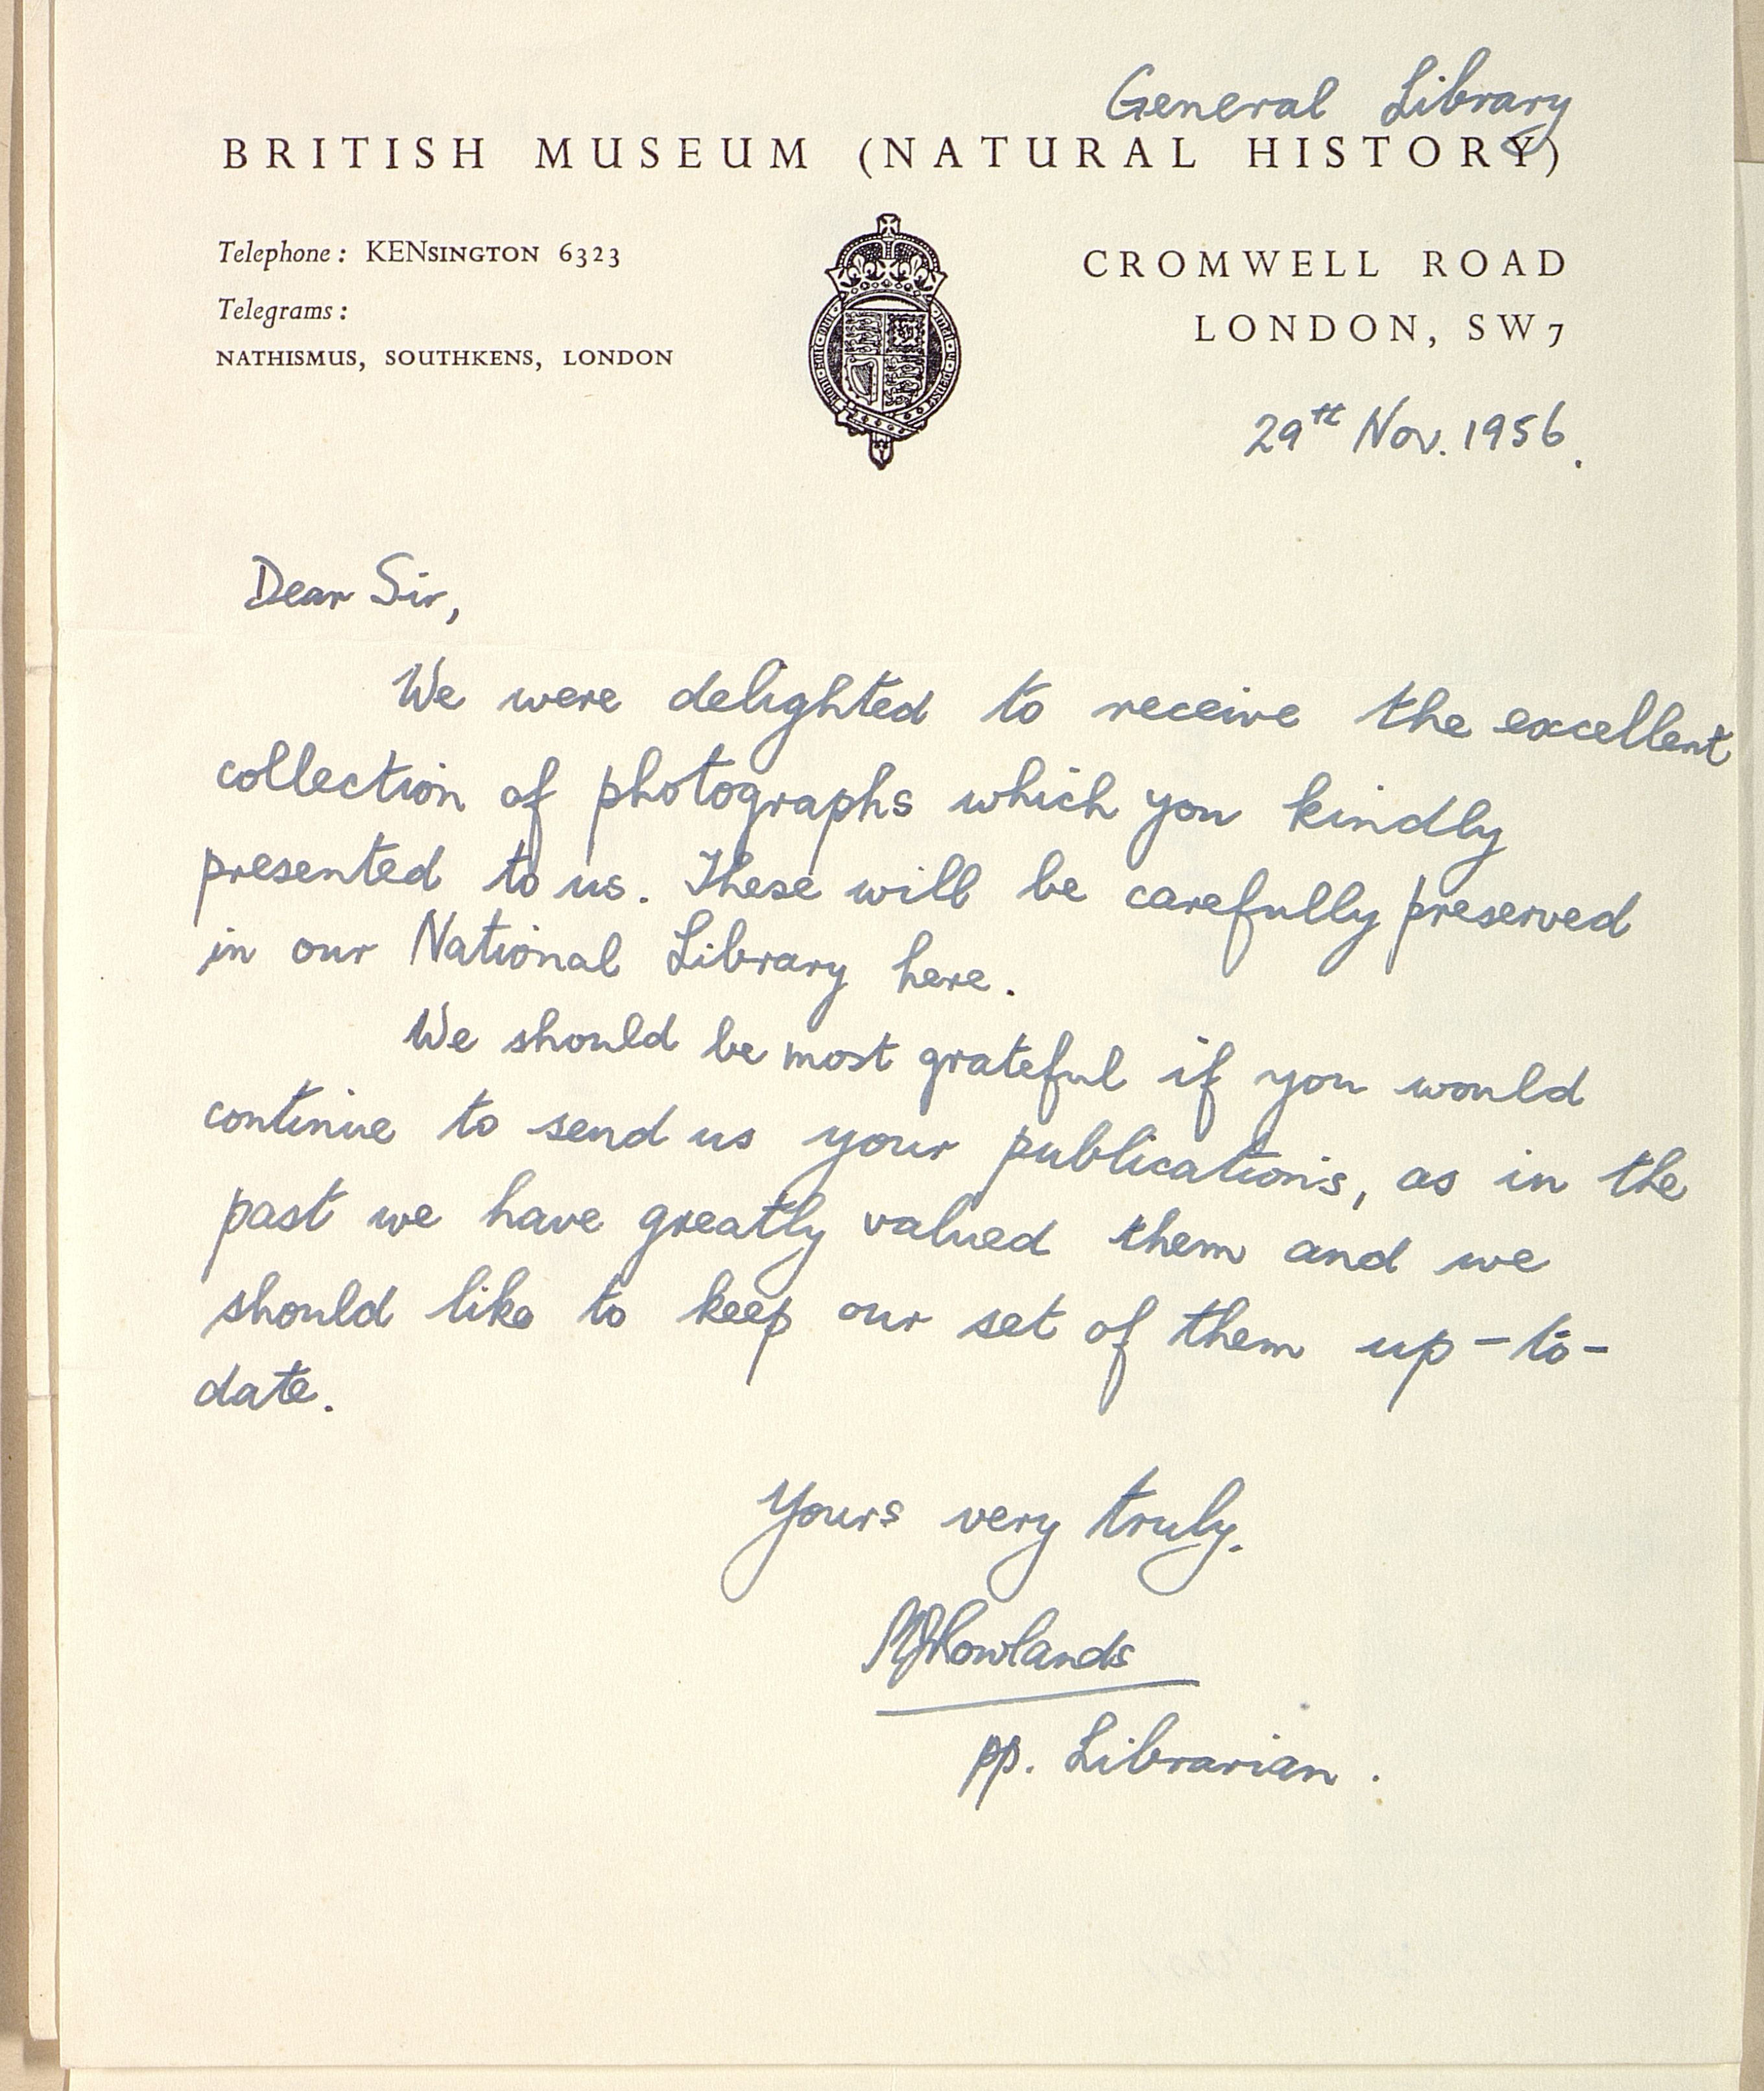 General Library
BRITISH MUSEUM (NATURAL HISTORY)
Telephone: KENSINGTON 6323
Telegrams:
NATHISMUS, SOUTHKENS, LONDON
CROMWELL ROAD
LONDON, SW7
29th Nov. 1956.
Dear Sir,
We were delighted to receive the excellent
collection of photographs which you kindly
presented to us. These will be carefully preserved
in our National Library here.
We should be most grateful if you would
continue to send us your publications, as in the
past we have greatly valued them and we
should like to keep our set of them up-to-
date.
Yours very truly.
Rowlands
pp. Librarian.